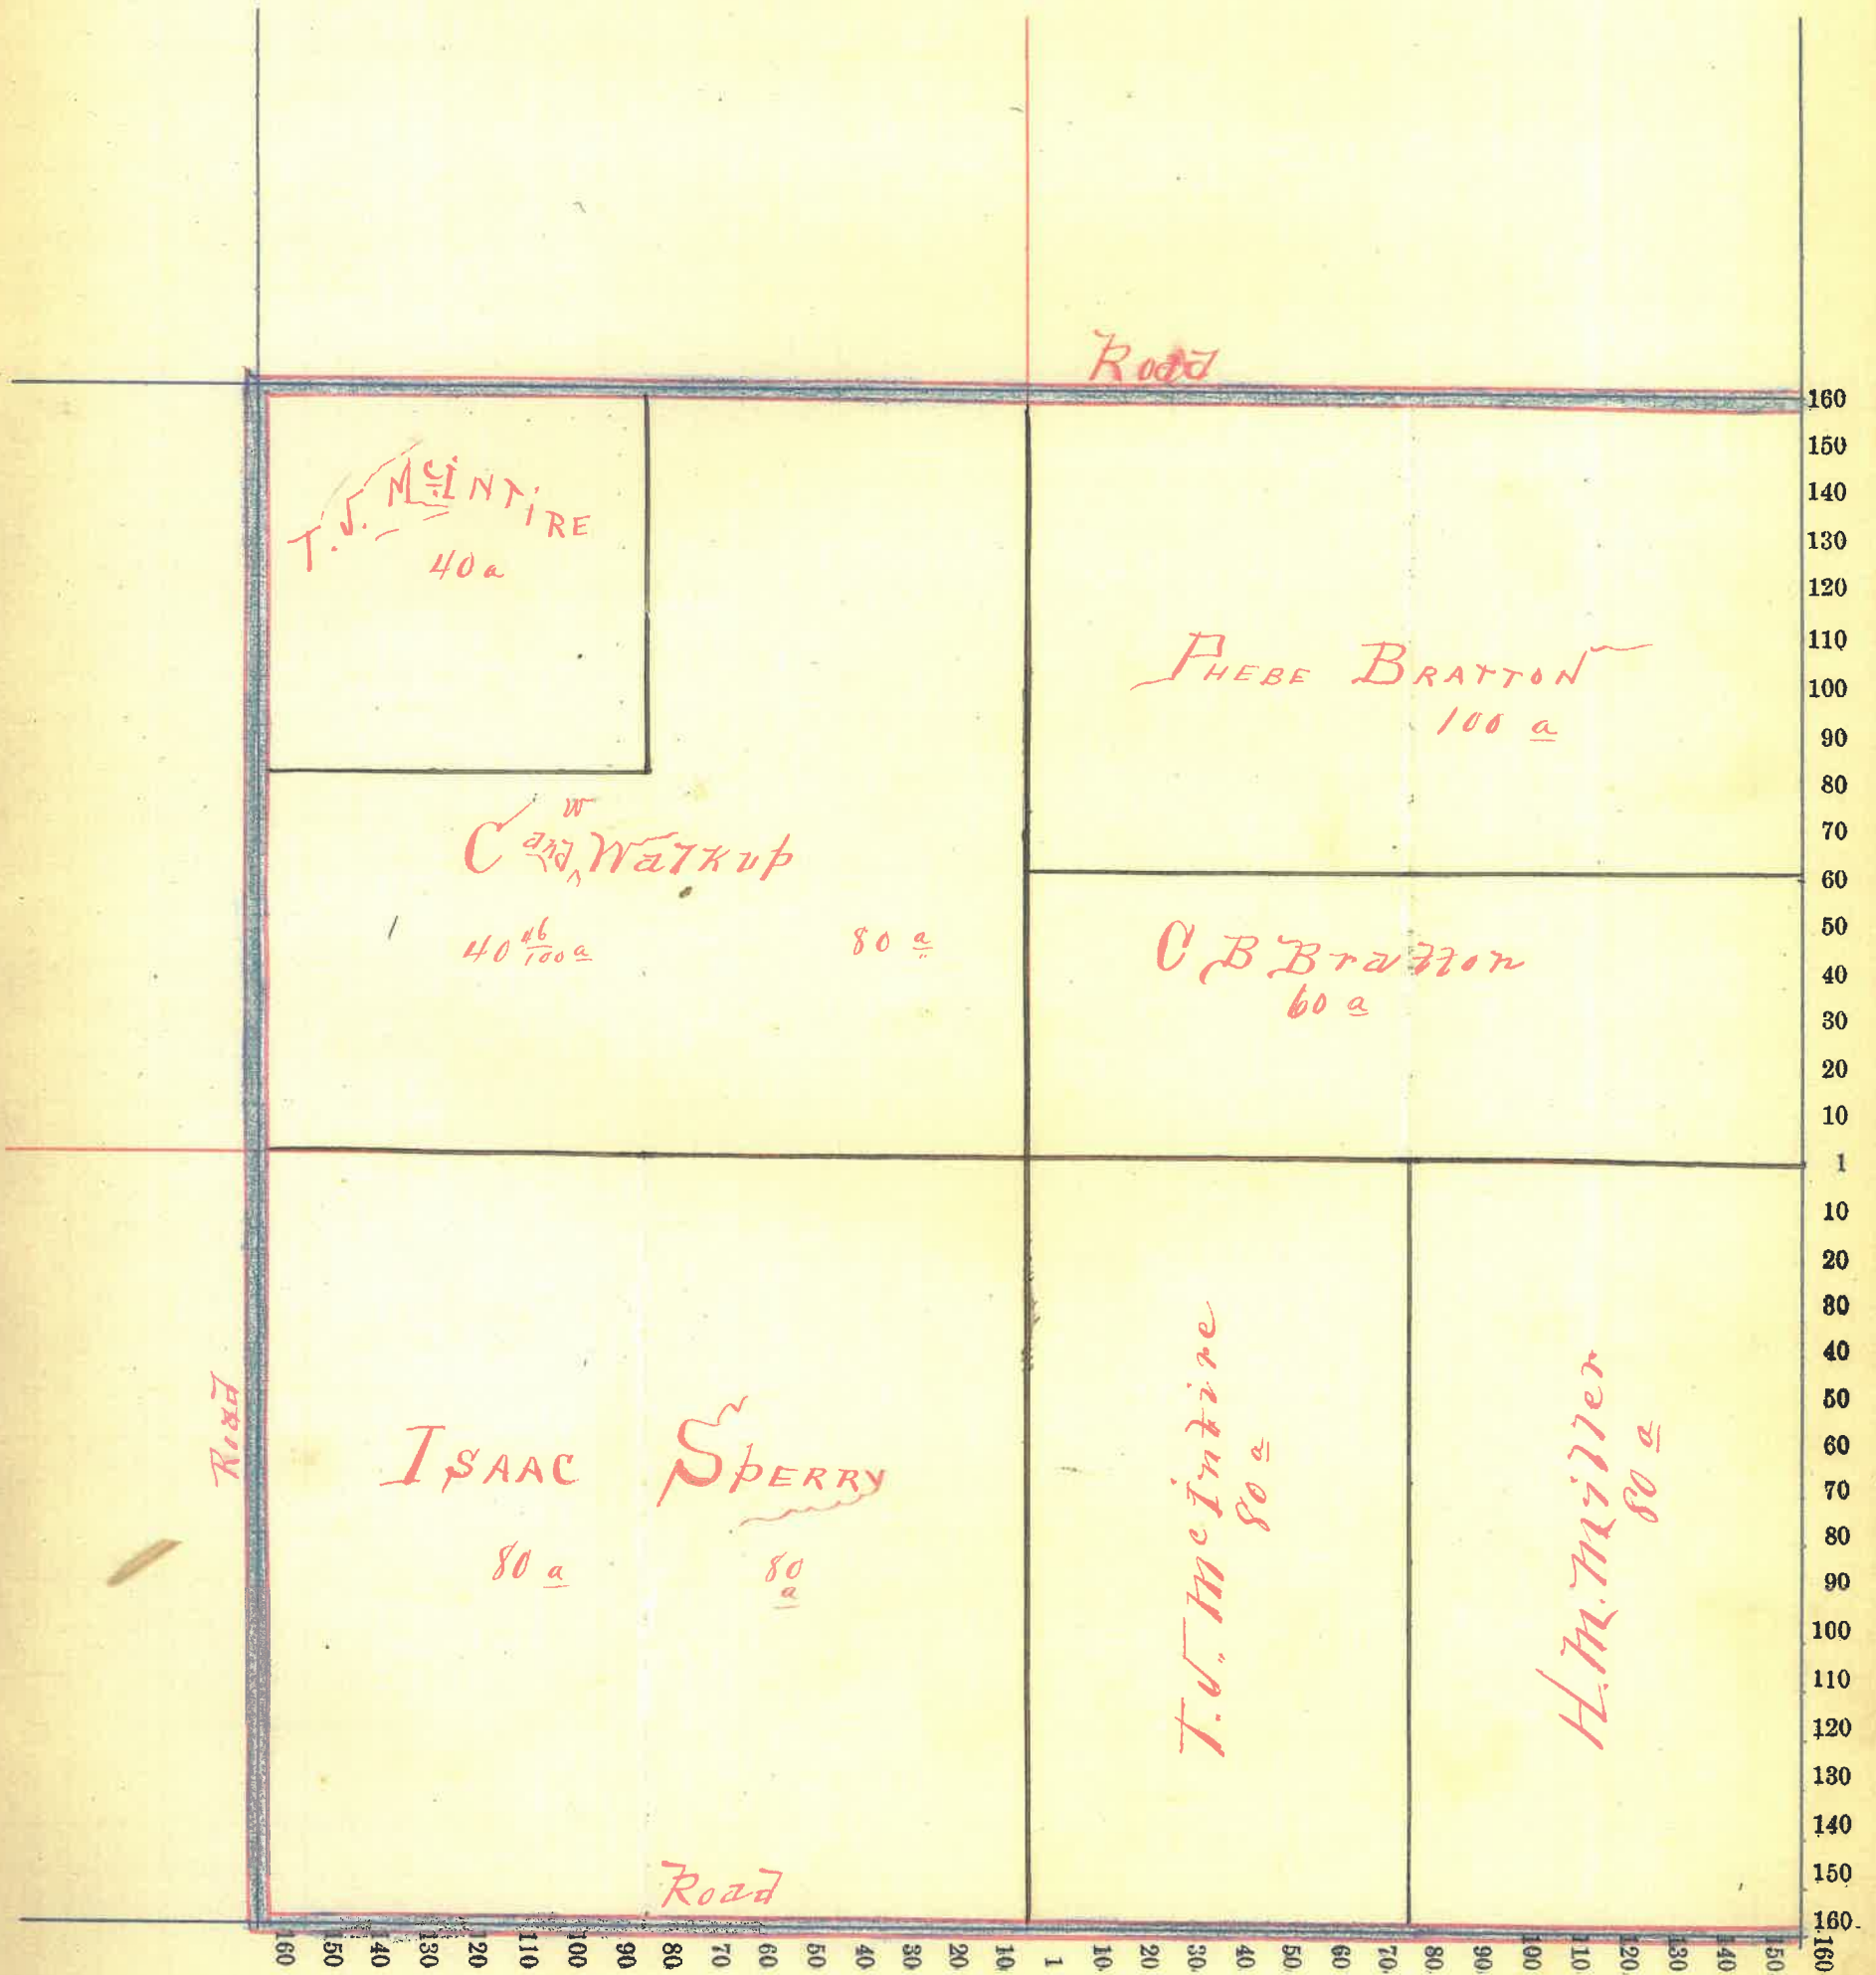 Road
T. J. McINTIRE
40 a
PHEBE BRATTON
100 a
w
C and ^ Walkup
40 46/100 a
80 a
C B Bratton
60 a
Road
ISAAC SPERRY
80 a
80 a
T. J. McIntire
80 a
H. M. Miller
80 a
Road
160
150
140
130
120
110
100
90
80
70
60
50
40
30
20
10
1
10
20
30
40
50
60
70
80
90
100
110
120
130
140
150
160
160 150 140 130 120 110 100 90 80 70 60 50 40 30 20 10 1 10 20 30 40 50 60 70 80 90 100 110 120 130 140 150 160